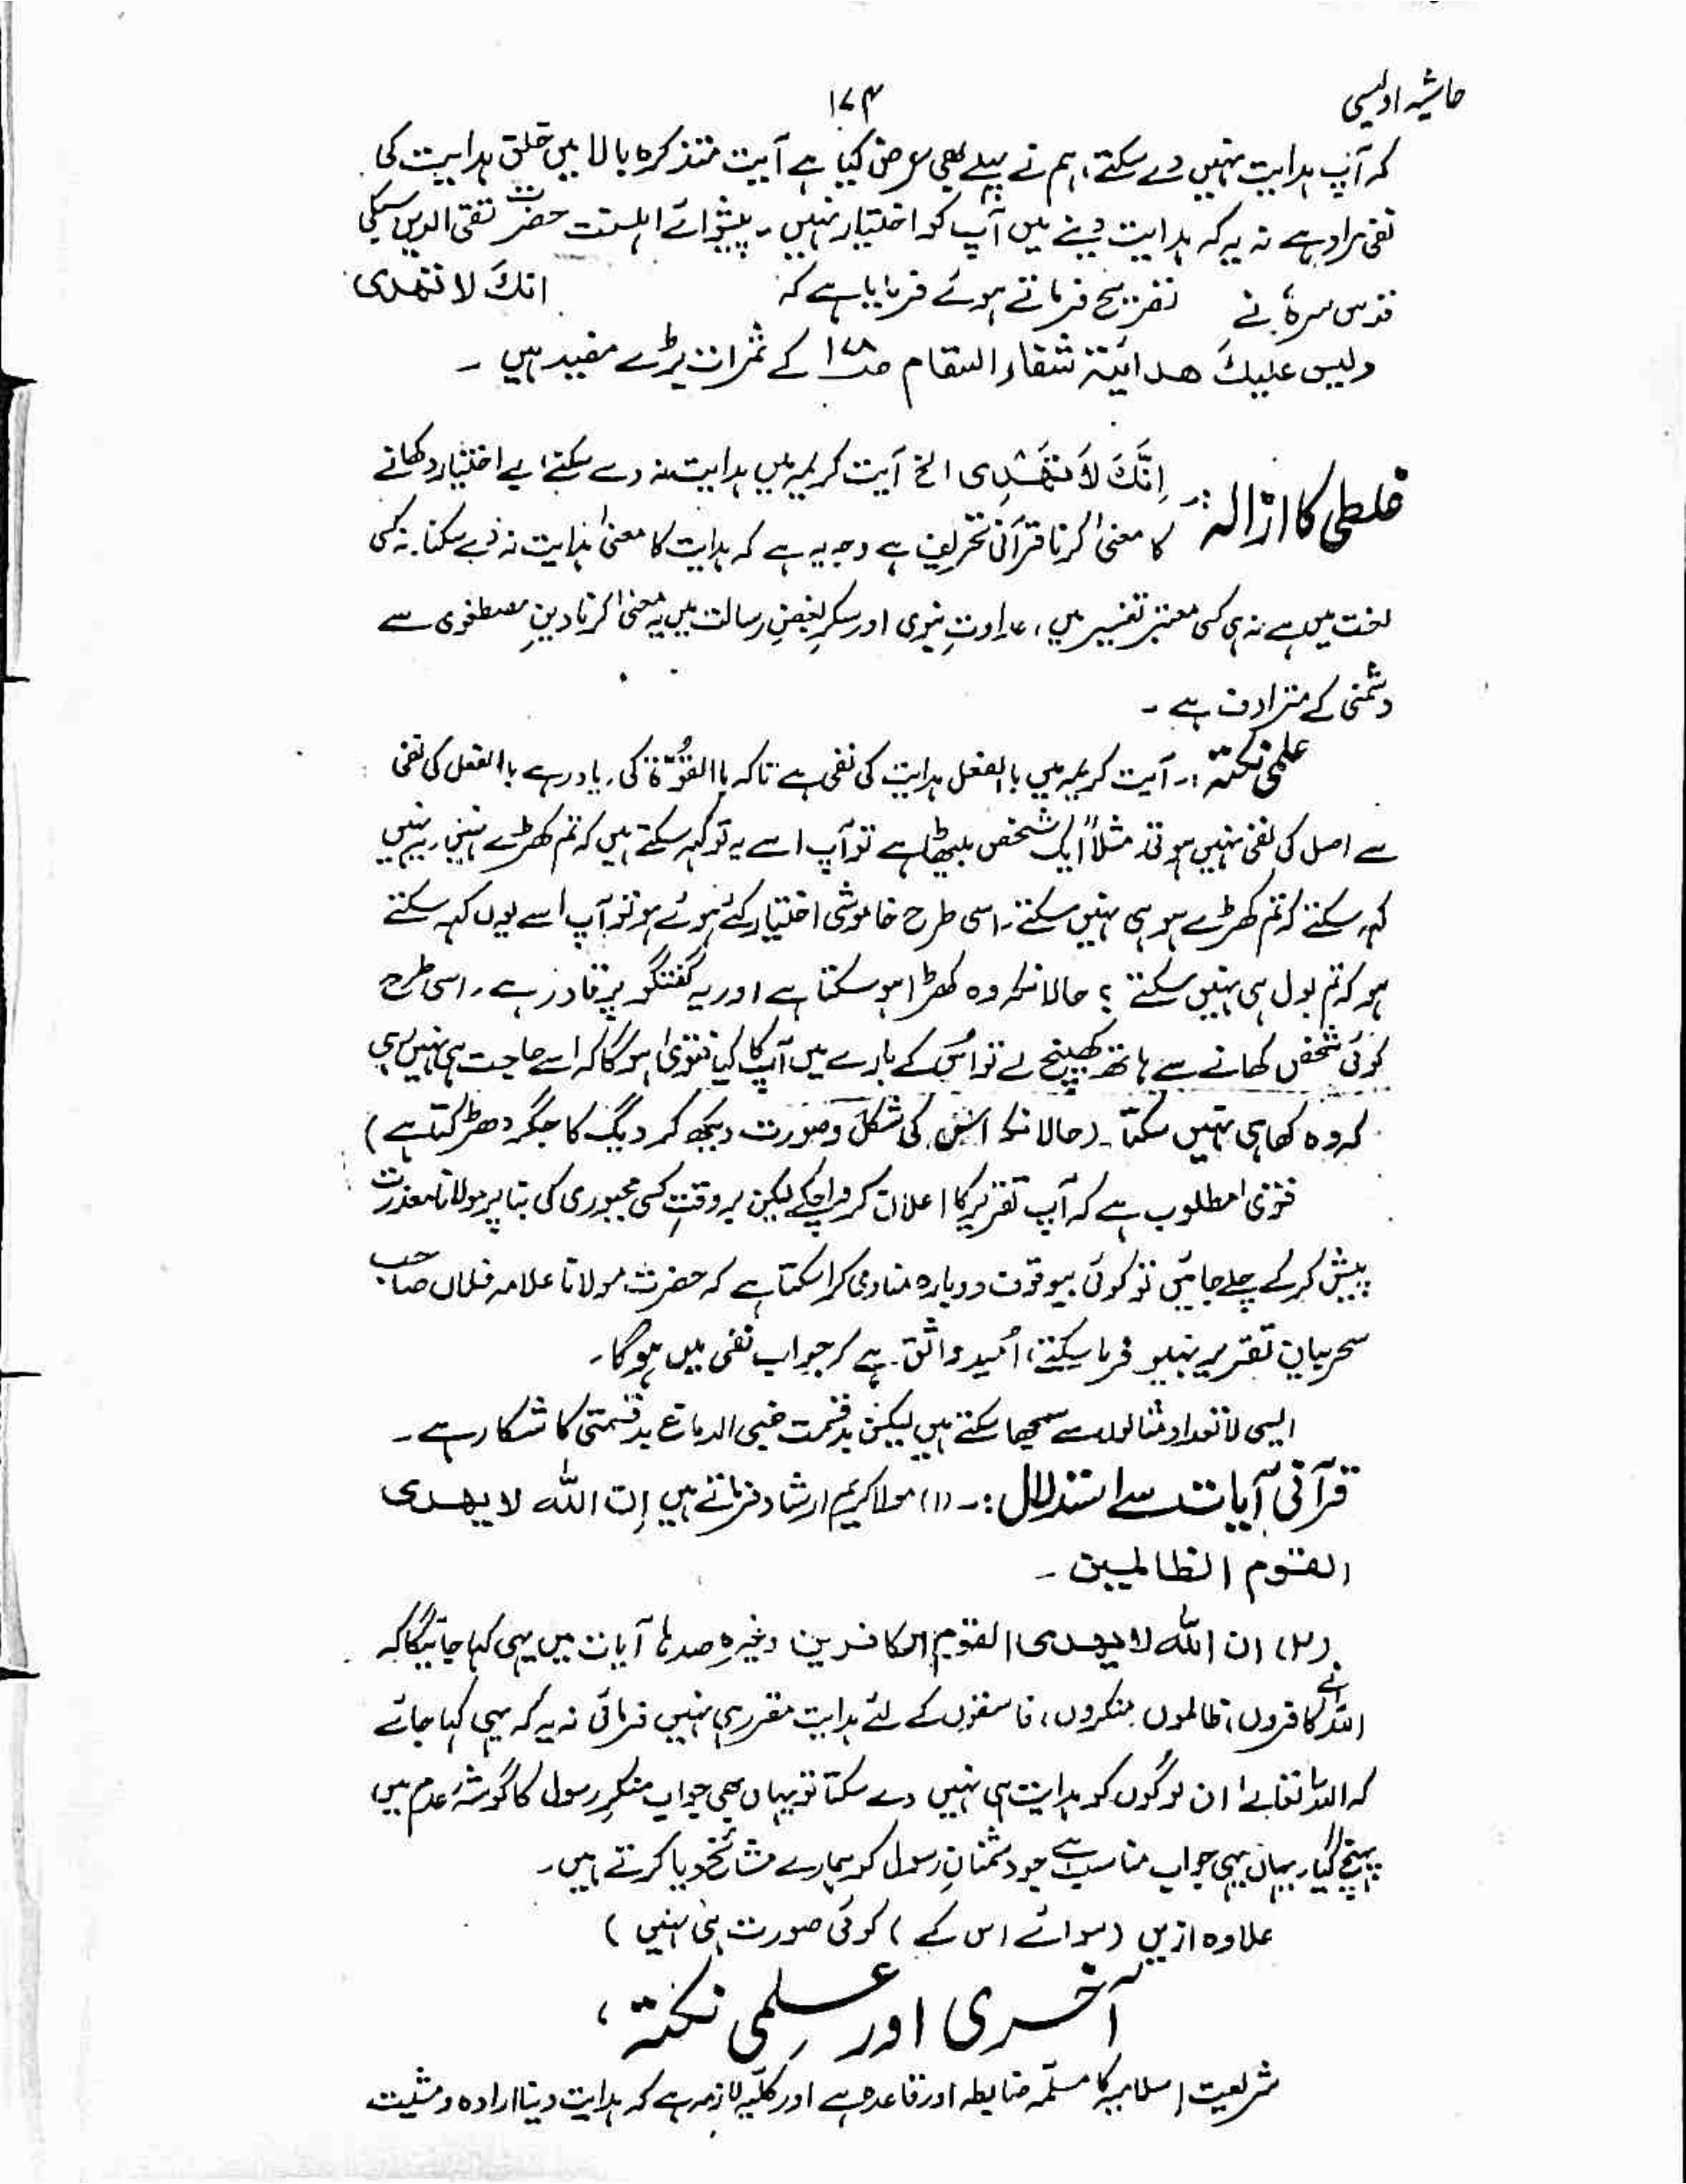 حاشیہ اویسی ۱۷۴
کہ آپ ہدایت نہیں دے سکتے، ہم نے پہلے بھی عرض کیا ہے آیت متذکرہ بالا میں خلق ہدایت کی
نفی مراد ہے نہ یہ کہ ہدایت دینے میں آپ کو اختیار نہیں۔ پیشوائے اہلسنت حضرت تقی الدین سبکی
قدس سرہٗ نے تفریح فرماتے ہوئے فرمایا ہے کہ انكَ لا تهدی
ولیس علیكَ هدایتهٗ شفاء السقام صـ۱۷۸ کے ثمرات بڑے مفید ہیں ۔
غلطی کا ازالہ :۔ اِنَّكَ لَا تَهْدِی الخ آیت کریمہ میں ہدایت نہ دے سکتے، بے اختیار دکھانے
کا معنیٰ کرنا قرآنی تحریف ہے وجہ یہ ہے کہ ہدایت کا معنیٰ ہدایت نہ دے سکتا۔ نہ کسی
لغت میں ہے نہ ہی کسی معتبر تفسیر میں، عداوتِ نبوی اور سکرِ بغضِ رسالت میں یہ معنیٰ کرنا دینِ مصطفوی سے
دشمنی کے مترادف ہے ۔
علمی نکتہ :۔ آیت کریمہ میں بالفعل ہدایت کی نفی ہے تاکہ باالقُوّۃ کی۔ یاد رہے باالفعل کی نفی
سے اصل کی نفی نہیں ہوتی، مثلاً ایک شخص بیٹھا ہے تو آپ اسے یہ تو کہہ سکتے ہیں کہ تم کھڑے نہیں، یہ نہیں
کہہ سکتے کہ تم کھڑے ہو ہی نہیں سکتے۔ اسی طرح خاموشی اختیار کئے ہوئے ہو تو آپ اسے یوں کہہ سکتے
ہو کہ تم بول ہی نہیں سکتے ؟ حالانکہ وہ کھڑا ہو سکتا ہے اور یہ گفتگو پر قادر ہے ۔ اسی طرح
کوئی شخص کھانے سے ہاتھ کھینچ لے تو اُس کے بارے میں آپ کا کیا فتویٰ ہوگا کہ اسے حاجت ہی نہیں رہی
کہ وہ کھا ہی نہیں سکتا۔ (حالانکہ اس کی شکل و صورت دیکھ کر دیگ کا جگر دھڑکتا ہے)
فتویٰ مطلوب ہے کہ آپ تقریر کا اعلان کروا چکے لیکن بروقت کسی مجبوری کی بنا پر مولانا معذرت
پیش کر کے چلے جائیں تو کوئی بیوقوف دوبارہ منادی کرا سکتا ہے کہ حضرت مولانا علامہ فلاں صاحب
سحر بیان تقریر نہیں فرما سکتے، اُمید واثق ہے کہ جواب نفی میں ہوگا۔
ایسی لاتعداد مثالوں سے سمجھا سکتے ہیں لیکن بدقسمت غبی الدماغ بدقسمتی کا شکار ہے ۔
قرآنی آیات سے استدلال :۔ (۱) مولا کریم ارشاد فرماتے ہیں إن اللّٰه لا یهدی
القوم الظالمین ۔
(۲) ان اللّٰه لا یهدی القوم الكافرین وغیرہ صدہا آیات میں یہی کہا جائیگا کہ
اللہ نے کافروں، ظالموں، منکروں، فاسقوں کے لئے ہدایت مقرر ہی نہیں فرمائی نہ یہ کہ یہی کہا جائے
کہ اللہ تعالیٰ ان لوگوں کو ہدایت ہی نہیں دے سکتا تو یہاں بھی جواب منکرِ رسول کا گوشۂ عدم میں
پہنچ گیا۔ یہاں یہی جواب مناسب ہے جو دشمنانِ رسول کو ہمارے مشائخ دیا کرتے ہیں۔
علاوہ ازیں (سوائے اس کے) کوئی صورت ہی نہیں )
آخری اور علمی نکتہ ،
شریعتِ اسلامیہ کا مسلّمہ ضابطہ اور قاعدہ ہے اور کلّیہ لازمہ ہے کہ ہدایت دینا ارادہ و مشیت